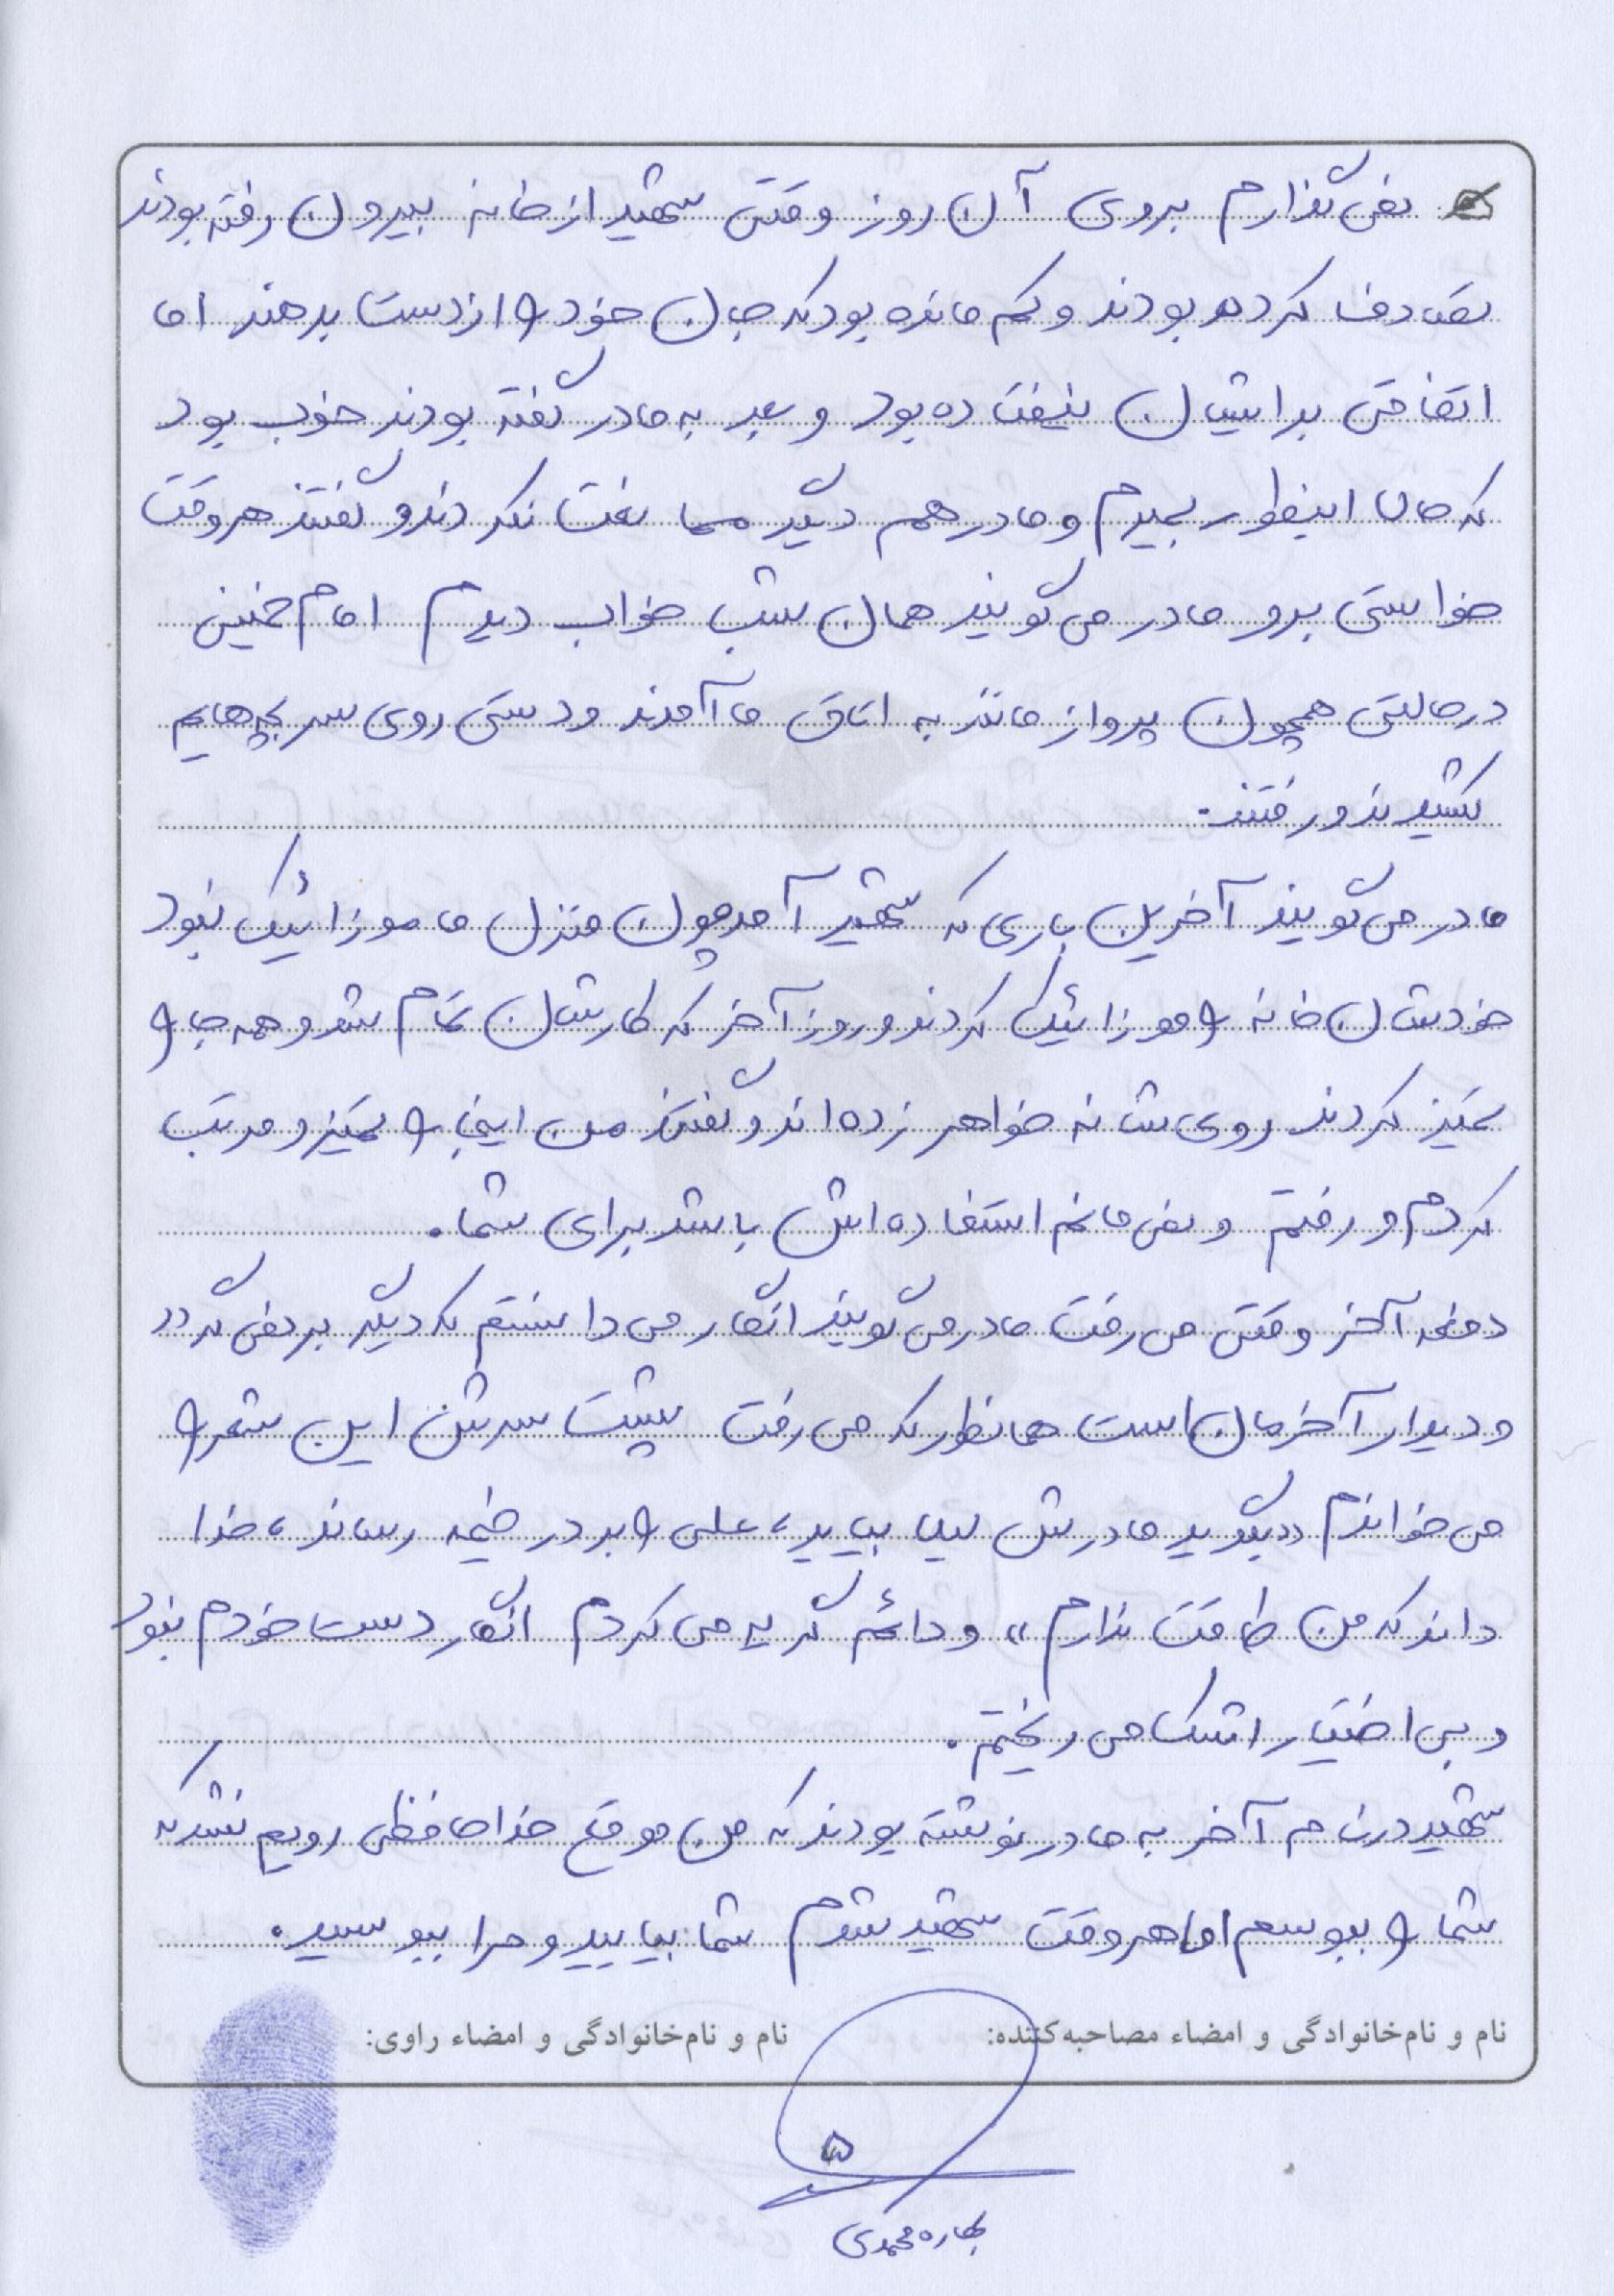 نمی‌گذارم بروی آن روز وقتی شهید از خانه بیرون رفته بودند
تصادف کرده بودند و کم مانده بود که جان خود را از دست بدهند اما
اتفاقی برایشان نیفتاده بود و بعد به مادر گفته بودند خوب بود
که حالا اینطور بمیرم و مادر هم دیگر ممانعت نکردند و گفتند هر وقت
خواستی برو مادر می‌گویند همان شب خواب دیدم امام خمینی
در حالتی همچون پرواز مانند به اتاق ما آمدند و دستی روی سر بچه‌هایم
کشیدند و رفتند.
مادر می‌گویند آخرین باری که شهید آمد چون منزل ما موزائیک نبود
خودشان خانه را موزائیک کردند و روز آخر که کارشان تمام شد و همه جا را
تمیز کردند روی شانه خواهر زده‌اند و گفتند من اینجا را تمیز و مرتب
کردم و رفتم و نمی‌مانم استفاده‌اش باشد برای شما.
دفعه آخر وقتی می‌رفت مادر می‌گویند انگار می‌دانستم که دیگر برنمی‌گردد
و دیدار آخرمان است همانطور که می‌رفت پشت سرش این شعر را
می‌خواندم «بگویید مادرش لیلا بیاید، علی را بر در خیمه رساند، خدا
داند که من طاقت ندارم» و دائم گریه می‌کردم انگار دست خودم نبود
و بی‌اختیار اشک می‌ریختم.
شهید در نامه آخر به مادر نوشته بودند که من موقع خداحافظی رویم نشد که
شما را ببوسم اما هر وقت شهید شدم شما بیایید و مرا ببوسید.
نام و نام‌خانوادگی و امضاء مصاحبه‌کننده: نام و نام‌خانوادگی و امضاء راوی:
۵
بهاره محمدی